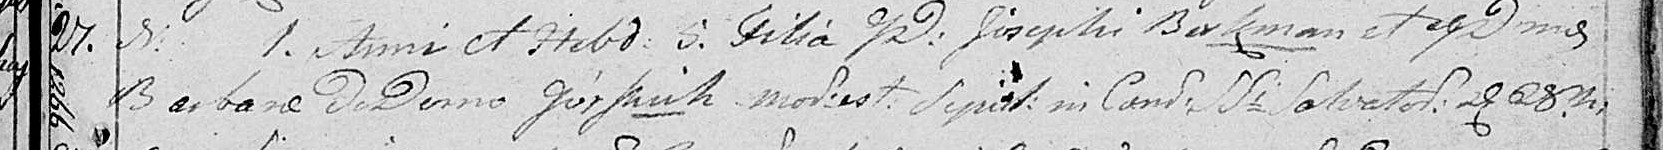 27. N: 1. Anni et Hebd: 5. Filia GD: Josephi Berkman et GD
Barbarae De Domo Górskich mod: est. Sepult: in Cond: SSi Salvator: 28.